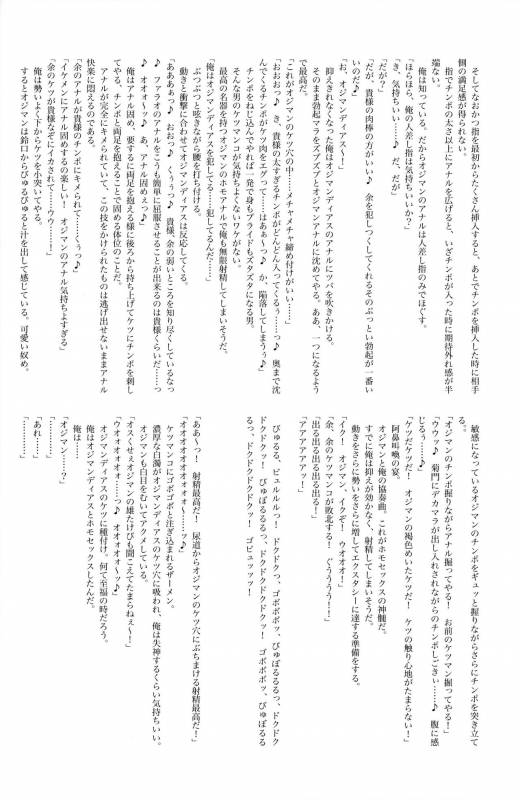 そしてなおかつ指を最初からたくさん挿入すると、あとでチンポを挿入した時に相手
側の満足感が得られない
指でチンポの太さ以上にアナルを広げると、いざチンポが入った時に期待外れ感が半
端ない。
俺は知っている。だからオジマンのアナルは人差し指のみでほぐす。
「ほらほら、俺の人差し指は気持ちいいか？」
「き、気持ちいい……♪　だ、だが」
「だが？」
「だが、貴様の肉棒の方がいい♪　余を犯しつくしてくれるそのぶっとい勃起が一番い
いのだ♪」
「お、オジマンディアスぅー！」
抑えきれなくなった俺はオジマンディアスのアナルにツバを吹きかける。
そのまま勃起マラをズブズブとオジマンアナルに沈めてやる。ああ、一つになるよう
で最高だ。
「これがオジマンのケツ穴の中……メチャメチャ締め付けがいい……」
「おおおっ♪　き、貴様の太すぎるチンポがどんどん入ってくるぅ……っ♪　奥まで沈
んでくるチンポがケツ肉をエグって……はぁあ～っ♪　か、陥落してしまうぅ♪」
チンポをねじ込んでやれば一発で身もプライドもズタズタになる男。
そんな男のケツマンコが気持ちよくないワケがない。
最高の名器を持つオジマンのホモアナルで俺も無限射精してしまいそうだ。
「俺はオジマンディアスを犯してる……犯してるんだ……」
ぶつぶつと呟きながら腰を打ち付ける。
動きと衝撃に合わせてオジマンディアスは反応してくる。
「あああぁっ♪　おおっ♪　くぅぅっ♪　貴様、余の弱いところを知り尽くしているなっ
♪　ファラオのアナルをこうも簡単に屈服させることが出来るのは貴様くらいだ……っ
♪　オオォッ♪　あ、アナル固めぇっ♪」
俺はアナル固め、要するに両足を抱える様に後ろから持ち上げてケツにチンポを刺し
てやる。チンポと両足を抱えることで固める体位のことだ。
アナルが完全にキメられていて、この技をかけられたものは逃げ出せないままアナル
快楽に悶えるのである。
「余のアナルが貴様のチンポにキメられて……くぅっ♪」
「イケメンにアナル固めするの楽しい！　オジマンのアナル気持ちよすぎる」
「余のケツが貴様なぞにイカされて……ウウーー！」
俺は勢いよく下からケツを小突いてやる。
するとオジマンは鈴口からぴゅるぴゅると汁を出して感じている。可愛い奴め。
敏感になっているオジマンのチンポをギュッと握りながらさらにチンポを突き立て
る。
「オジマンのチンポ握りながらアナル掘ってやる！　お前のケツマン掘ってやる！」
「ウウゥ……♪　菊門にデカマラが出し入れされながらのチンポしごきぃ……♪　腹に感
じるぅ……♪」
「ケツだケツだ！　オジマンの褐色めいたケツだ！　ケツの触り心地がたまらない！」
阿鼻叫喚の宴。
オジマンと俺の協奏曲。これがホモセックスの神髄だ。
すでに俺は抑えが効かなく、射精してしまいそうだ。
動きをさらに勢いをさらに増してエクスタシーに達する準備をする。
「イク！　オジマン、イクぞ！　ウオオオ！」
「余、余のケツマンコが敗北する！　ぐううううー！！」
「出る出る出る出る出る出る！」
「アアアアアアッ！」
びゅるる、ビュルルルっ！　ドクドクっ、ゴボボボッ、びゅぼるるるっ、ドクドク
ドクドクドクッ！　びゅぼるるるっ、ドクドクドクドクッ！　ゴボボボッ、びゅぼるる
るっ、ドクドクドクドクドクッ！　ゴピュッッッ！
「ああ～っ！　射精最高だ！　尿道からオジマンのケツ穴にぶちまける射精最高だ！」
「オオオオオオオオォ～……ッ♪」
ケツマンコにゴボゴボと注ぎ込まれるザーメン。
濃厚な白濁がオジマンディアスのケツ穴に吸われ、俺は失神するくらい気持ちいい。
オジマンも白目をむいてアクメしている。
「オスくせぇオジマンの雄たけびも聞こえてたまらねぇ～！」
「ウオオオォォォ……っ♪　オオォォォ～ッ♪」
オジマンディアスのケツに種付け。何て至福の時だろう。
俺はオジマンディアスとホモセックスしたんだ。
俺は……
「オジマン……？」
「………」
「あれ……」
「………」